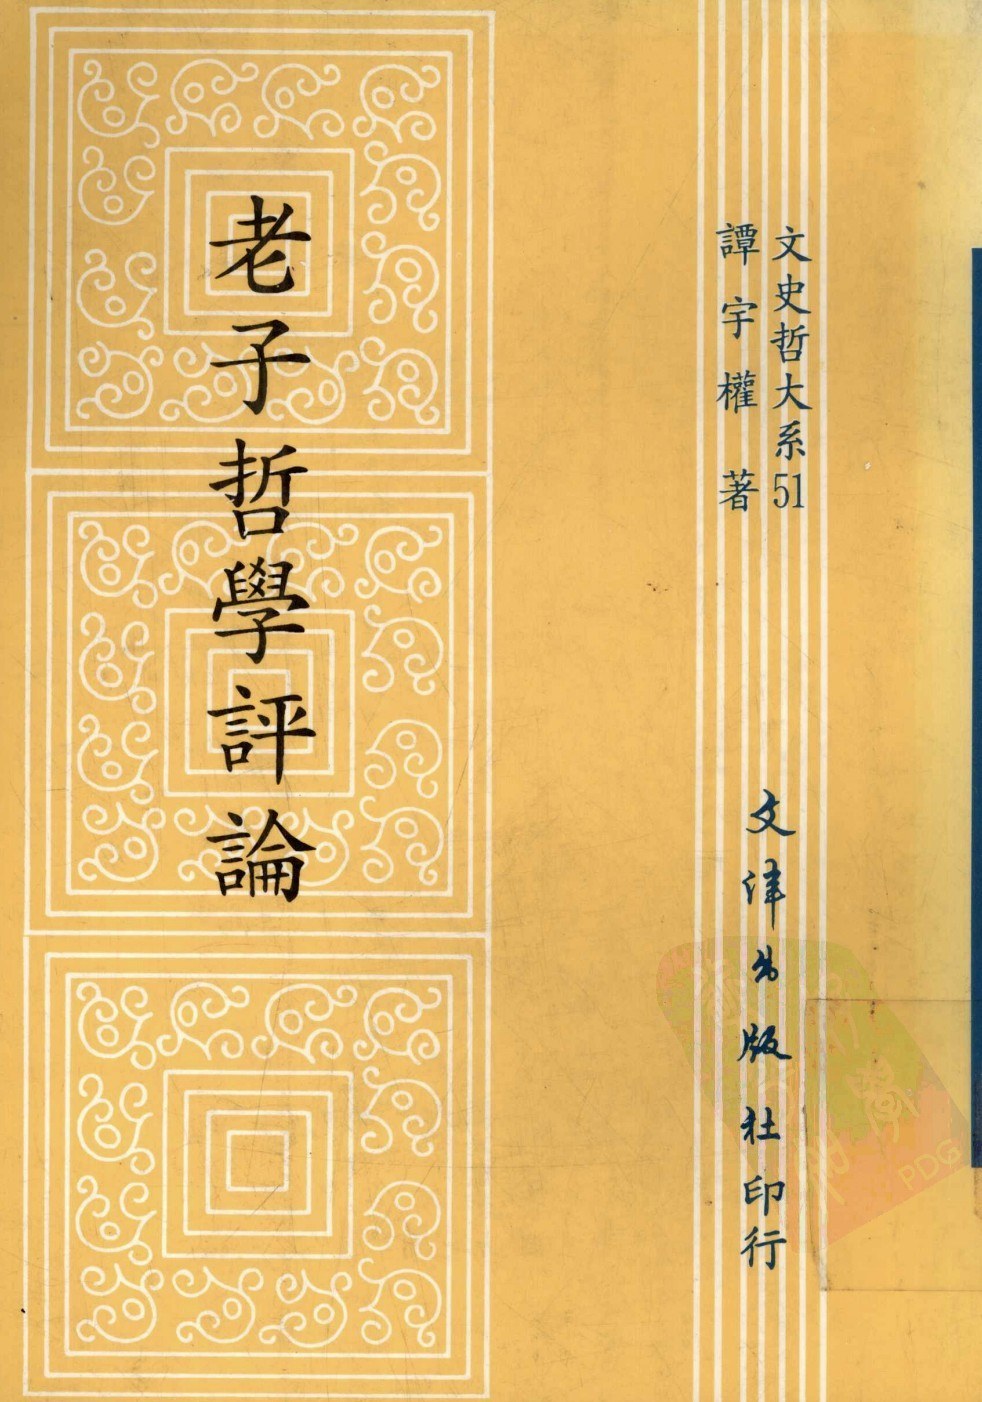 文史哲大系51
譚宇權 著
老子哲學評論
文津出版社印行
PDG